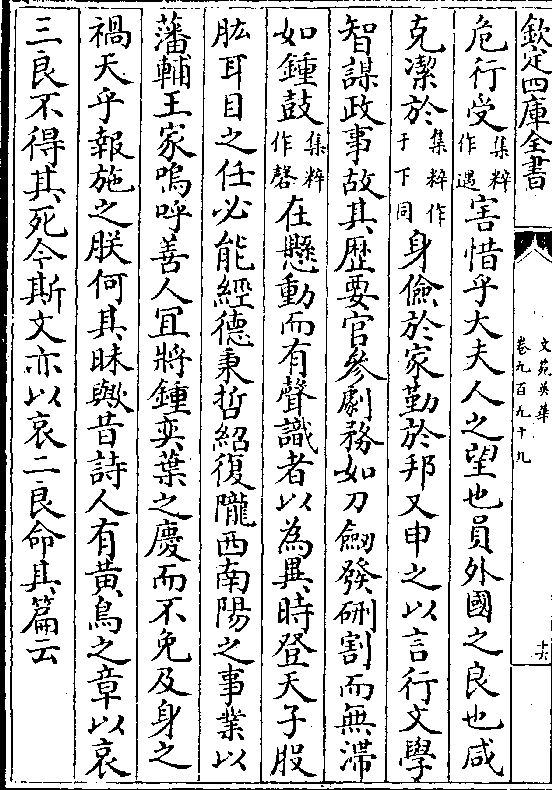 欽定四庫全書
文苑英華
卷九百九十九
十六
危行受集粹作遇害惜乎大夫人之望也員外國之良也咸
克潔於集粹作于下同身儉於家勤於邦又申之以言行文學
智謀政事故其歴要官參劇務如刀劒發硎割而無滯
如鍾鼓集粹作磬在懸動而有聲識者以為異時登天子股
肱耳目之任必能經德秉哲紹復隴西南陽之事業以
藩輔王家嗚呼善人宜將鍾奕葉之慶而不免及身之
禍天乎報施之朕何其昧歟昔詩人有黄鳥之章以哀
三良不得其死今斯文亦以哀二良命其篇云